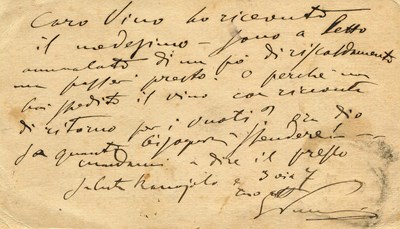 Caro Vino ho ricevuto
il medesimo – sono a letto
ammalato di un po' di riscaldamento
ma passerà presto. O perchè non
hai spedito il vino con ricevuta
di ritorno per i vuoti? Gran dio
sa quanto bisognerà spendere! —
mandami a dire il prezzo
saluta Ramajolo e